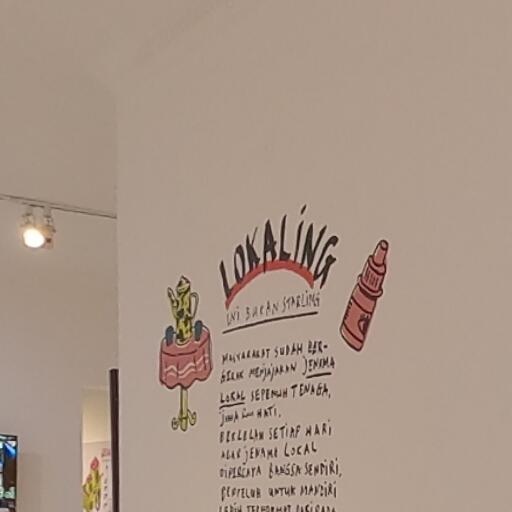 LOKALING
INI BUKAN STARLING
MASYARAKAT SUDAH BER-
GERAK MENJAJAKAN JENAMA
LOKAL SEPENUH TENAGA,
JIWA DAN HATI.
BERKELAH SETIAP HARI
AGAR JENAMA LOKAL
DIPERCAYA BANGSA SENDIRI,
BERPELUH UNTUK MANDIRI
LEBIH TERHORMAT DARIPADA